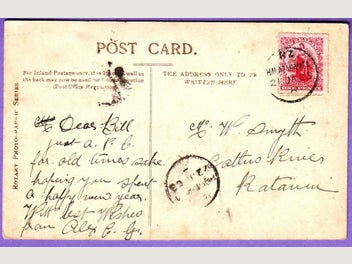 POST CARD.
For Inland Postage only, it is Inland as well as
the back may now be used for Communication
(Post Office Regulation)
THE ADDRESS ONLY TO BE
WRITTEN HERE
ROTARY PHOTOGRAPHIC SERIES
NZ
ONE PENNY
Dear Bill
just a. P. C.
for old times sake.
hoping you spent
a happy new year.
With best wishes
from Alex
W Smyth
River